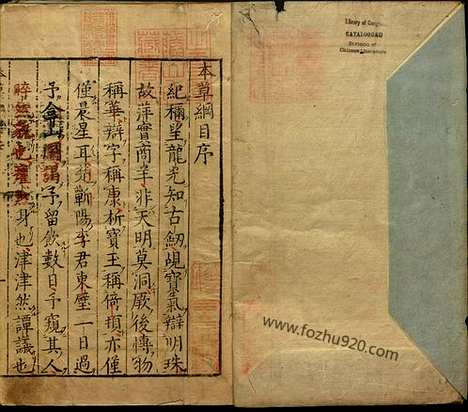 本草綱目序
紀稱望龍光知古劍覘寶氣辯明珠
故萍實商羊非天明莫洞厥後博物
稱華辯字稱康析寶玉稱倚頓亦僅
僅晨星耳楚蘄陽李君東璧一日過
予弇山園謁予留飲數日予窺其人
睟然貌也癯然身也津津然譚議也
Library of Congress
CATALOGUED
Division of
Chinese Literature
www.fozhu920.com